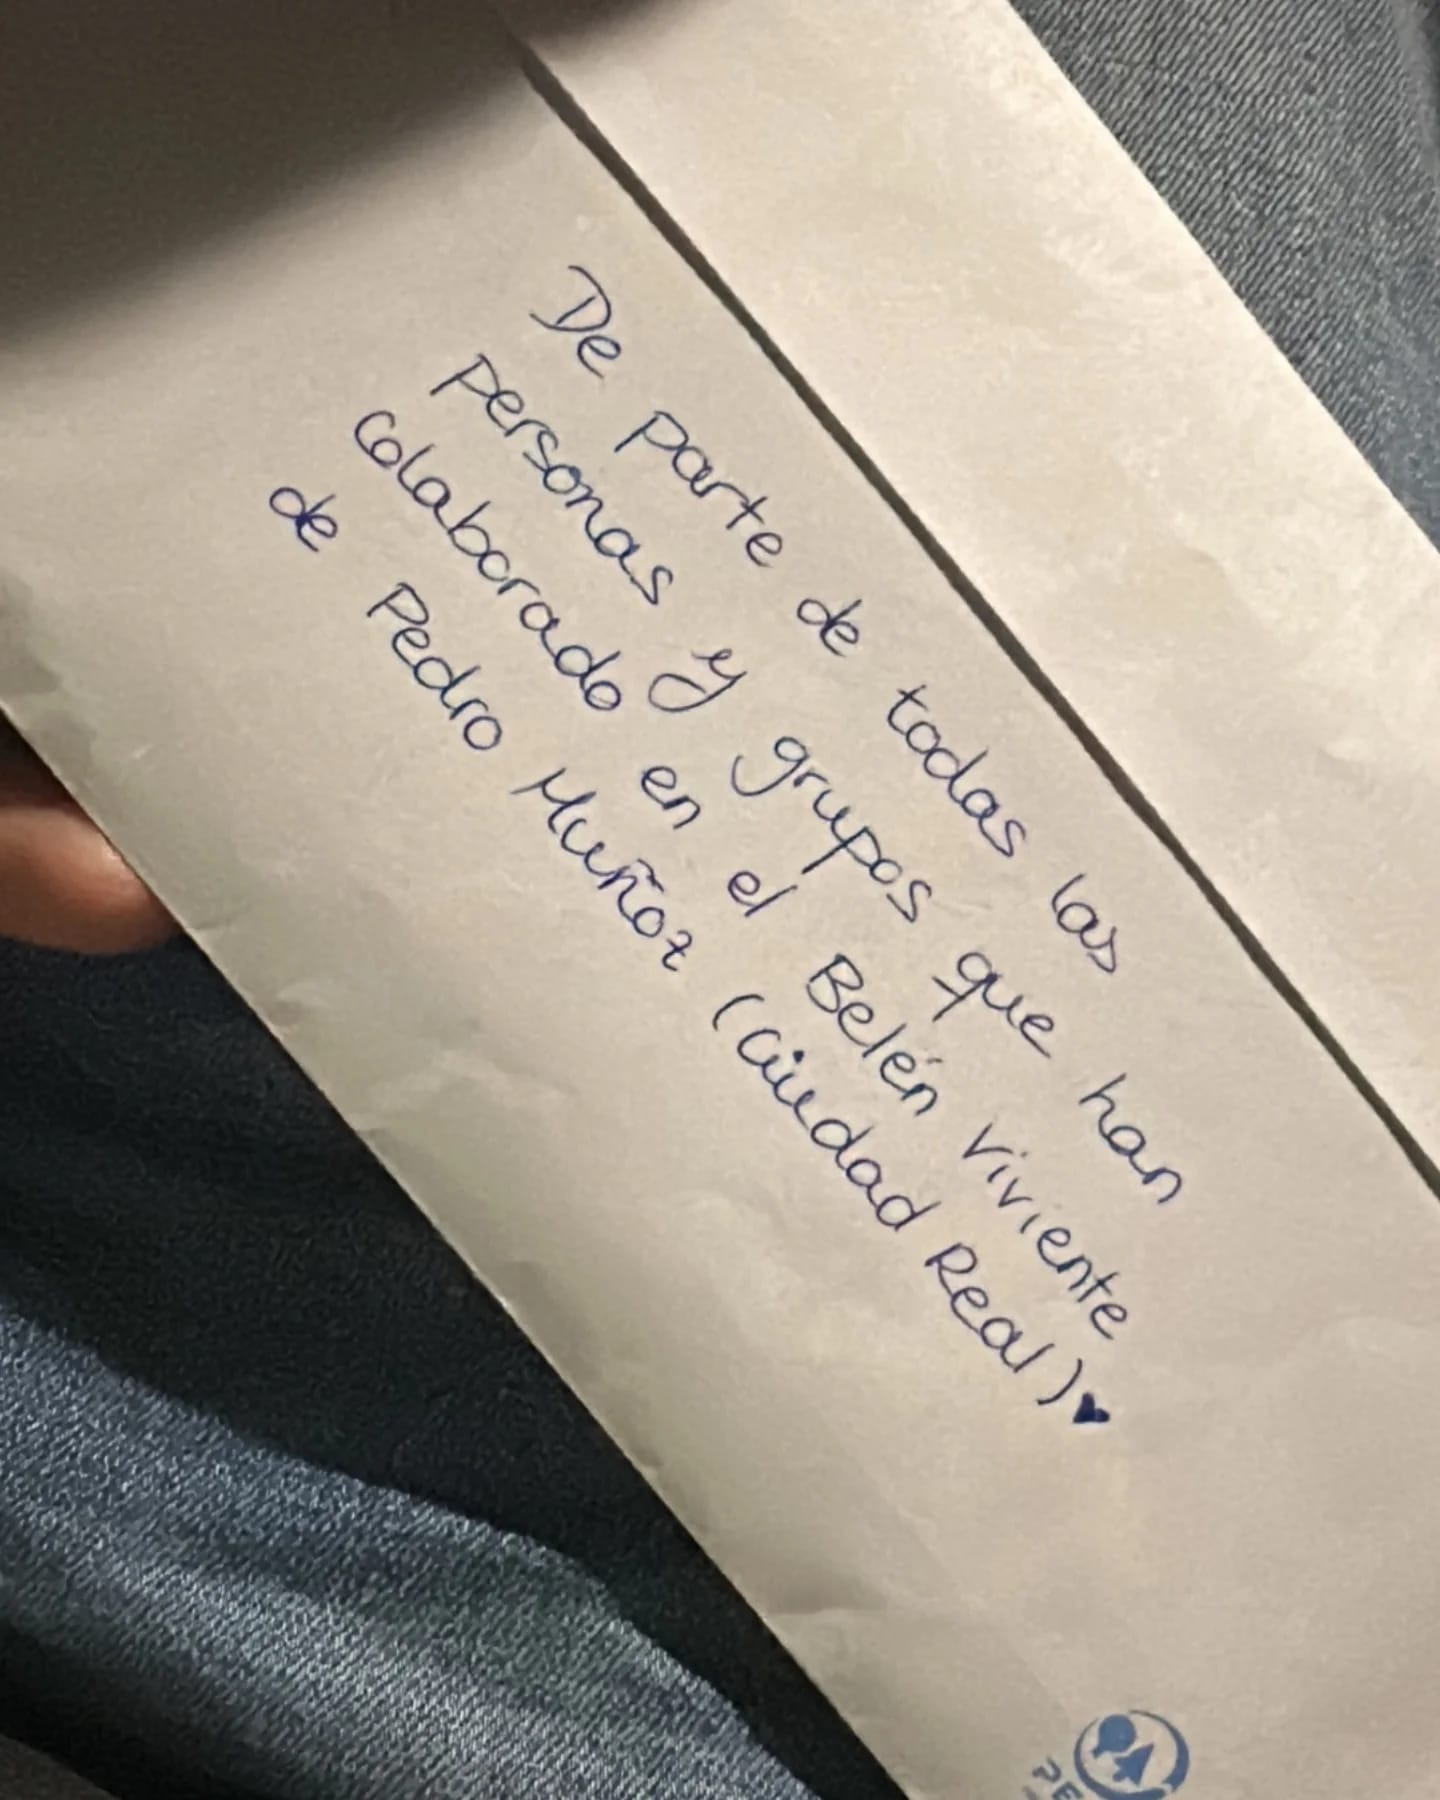 De parte de todas las
personas y grupos que han
colaborado en el Belén viviente
de Pedro Muñoz (Ciudad Real)♥
PE